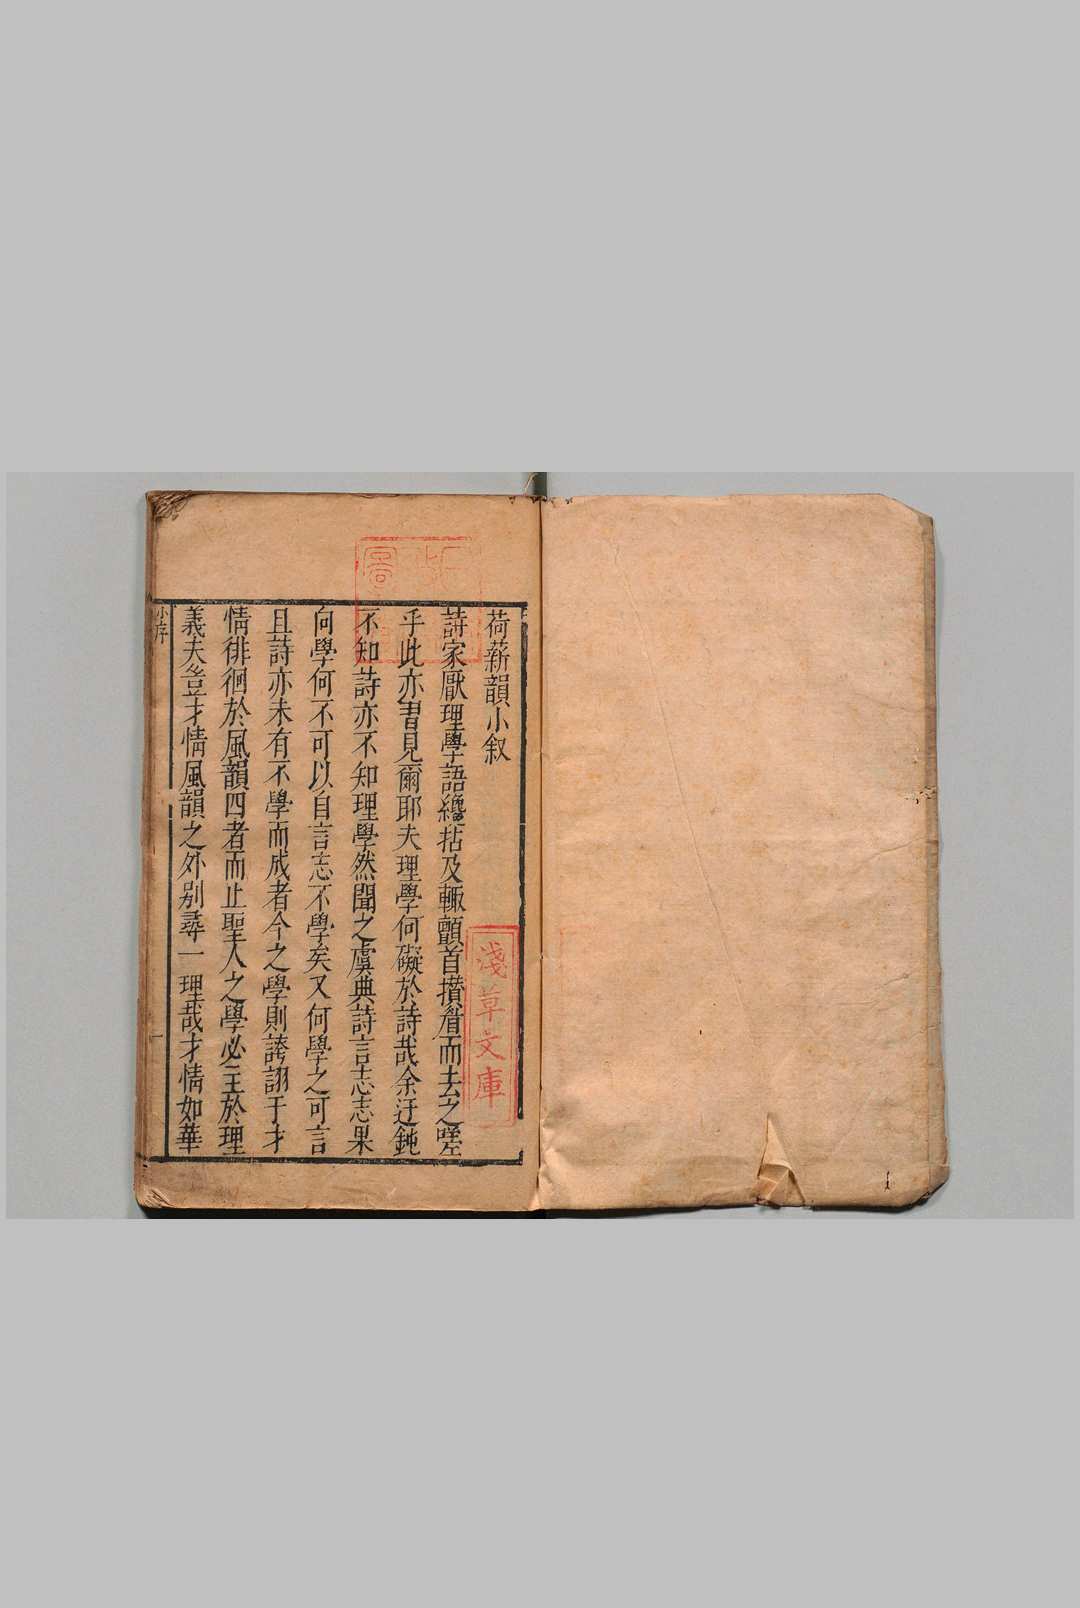 荷薪韻小叙
詩家厭理學語纔拈及輒顰首攢眉而去之嗟
乎此亦眚見爾耶夫理學何礙於詩哉余迂鈍
不知詩亦不知理學然聞之虞典詩言志志果
向學何不可以自言志不學矣又何學之可言
且詩亦未有不學而成者今之學則誇詡于才
情徘徊於風韻四者而止聖人之學必主於理
義夫豈才情風韻之外別尋一理哉才情如華
小序
一
淺草文庫